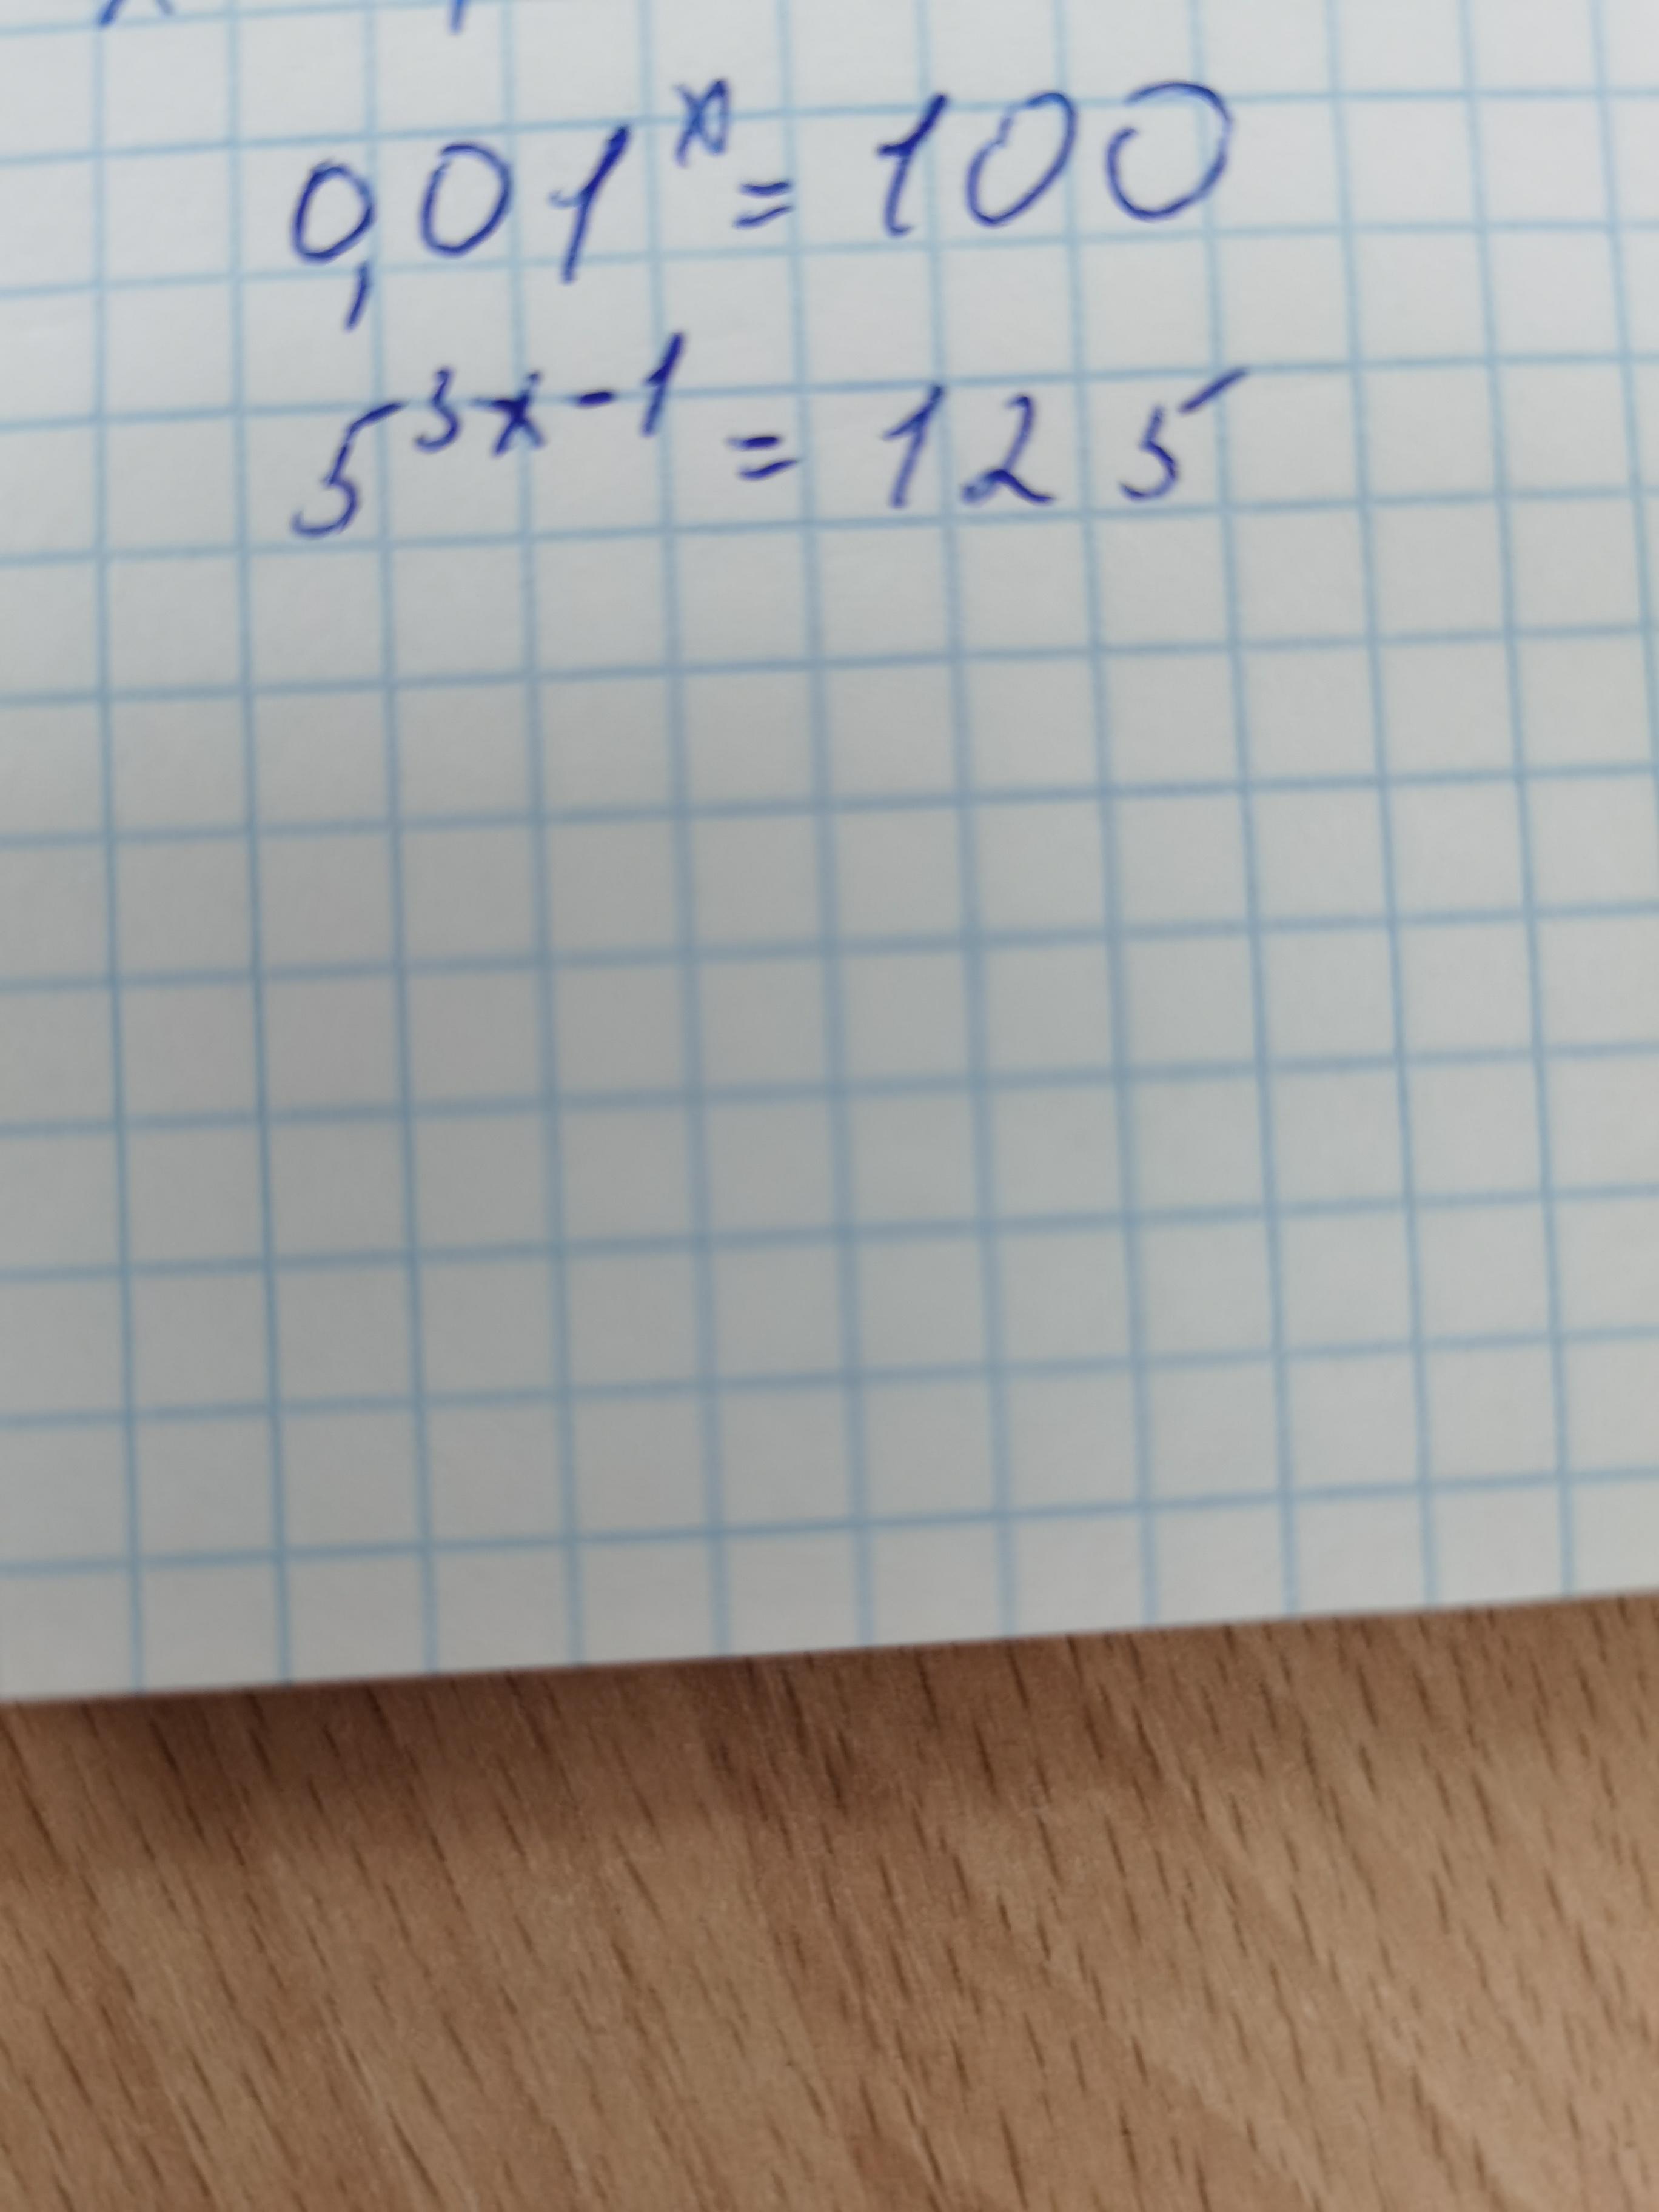 0,01^x = 100
5^{3x-1} = 125